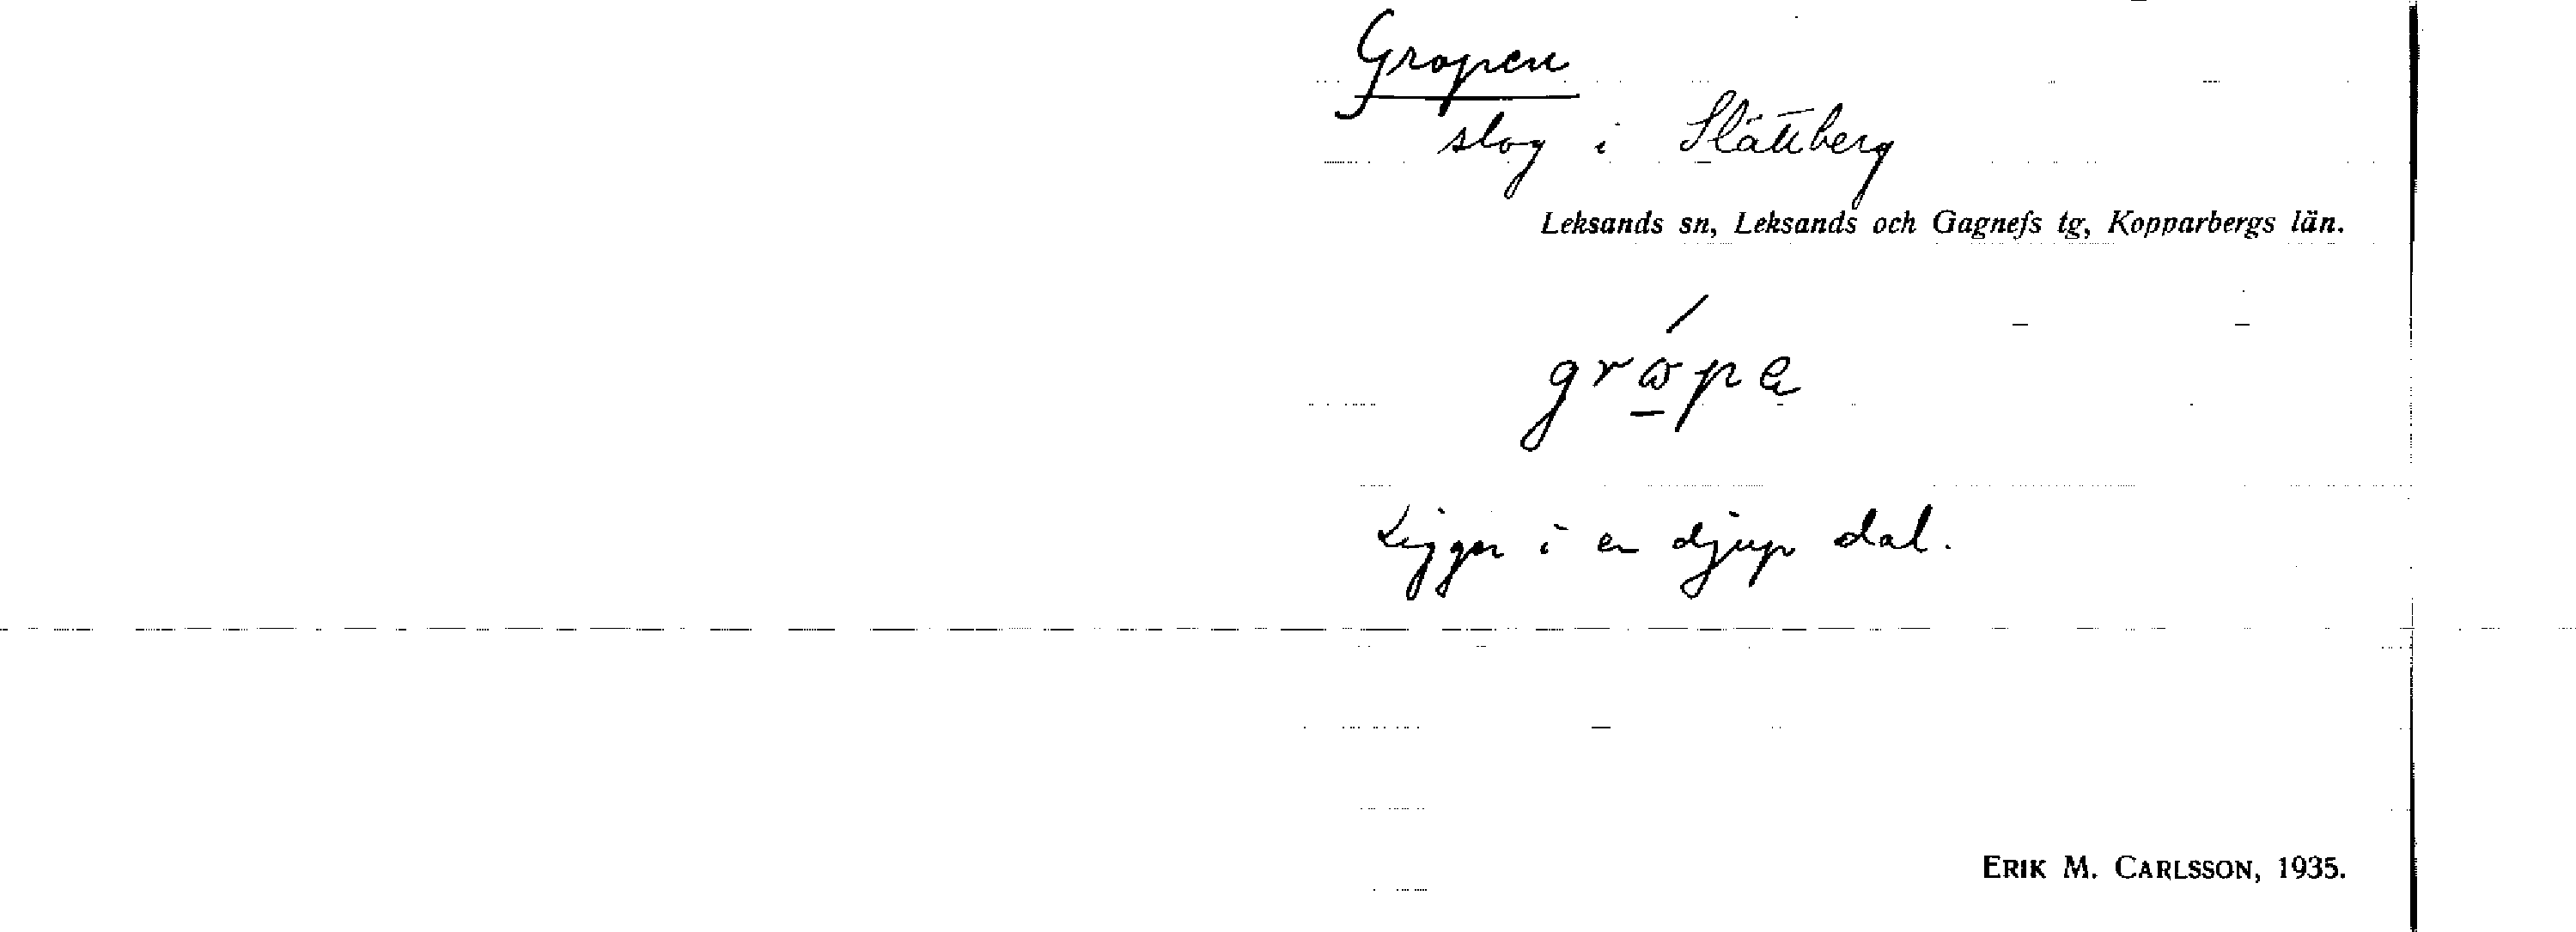 Gropen
slog i Slättberg
Leksands sn, Leksands och Gagnefs tg, Kopparbergs län.
Ligger i en djup dal.
ERIK M. CARLSSON, 1935.